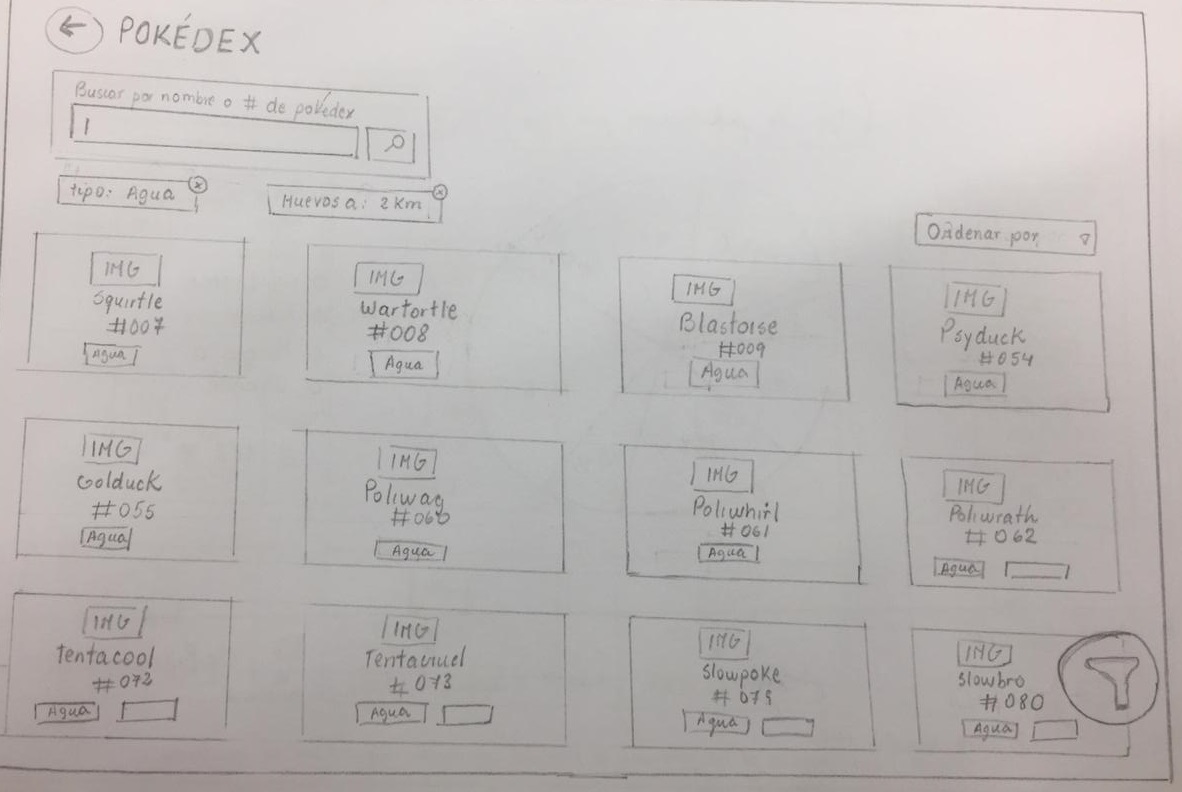 POKÉDEX
Buscar por nombre o # de pokédex
tipo: Agua
Huevos a: 2 Km
Ordenar por
IMG
Squirtle
#007
Agua
IMG
Wartortle
#008
Agua
IMG
Blastoise
#009
Agua
IMG
Psyduck
#054
Agua
IMG
Golduck
#055
Agua
IMG
Poliwag
#060
Agua
IMG
Poliwhirl
#061
Agua
IMG
Poliwrath
#062
Agua
IMG
Tentacool
#072
Agua
IMG
Tentacruel
#073
Agua
IMG
Slowpoke
#079
Agua
IMG
Slowbro
#080
Agua